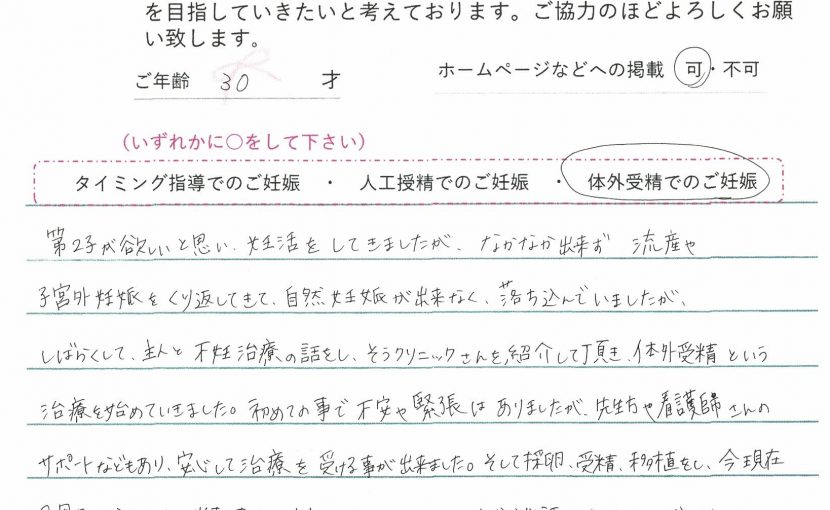 を目指していきたいと考えております。ご協力のほどよろしくお願
い致します。
ご年齢 30 才 ホームページなどへの掲載 可・不可
（いずれかに○をして下さい）
タイミング指導でのご妊娠 ・ 人工授精でのご妊娠 ・ 体外受精でのご妊娠
第2子が欲しいと思い、妊活をしてきましたが、なかなか出来ず 流産や
子宮外妊娠をくり返してきて、自然妊娠が出来なく、落ち込んでいましたが、
しばらくして、主人と不妊治療の話をし、そうクリニックさんを紹介して頂き、体外受精という
治療を始めていきました。初めての事で不安や緊張はありましたが、先生方や看護師さんの
サポートなどもあり、安心して治療を受ける事が出来ました。そして採卵、受精、移植をし、今現在